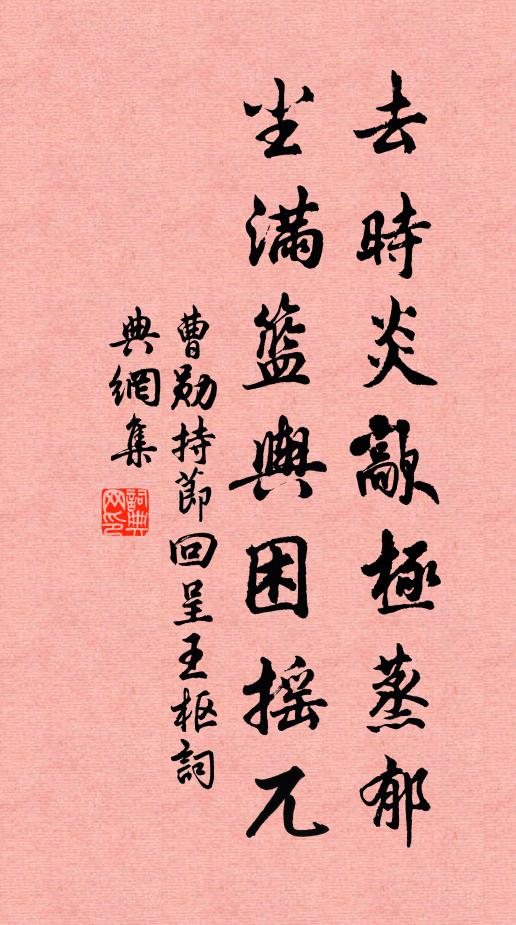 去時炎歊極蒸郁
坐滿籃輿困摇兀
曹勋持節回呈王枢詞
典網集
詞典
网印